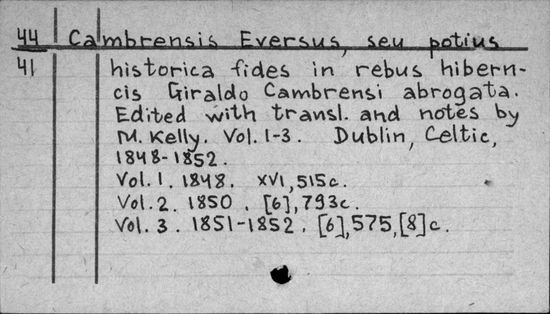 44 Cambrensis Eversus, seu potius
41 historica fides in rebus hibern-
cis Giraldo Cambrensi abrogata.
Edited with transl. and notes by
M. Kelly. Vol. 1-3. Dublin, Celtic,
1848-1852.
Vol. 1. 1848. XVI, 515c.
Vol. 2. 1850. [6], 793c.
Vol. 3. 1851-1852. [6], 575, [8]c.